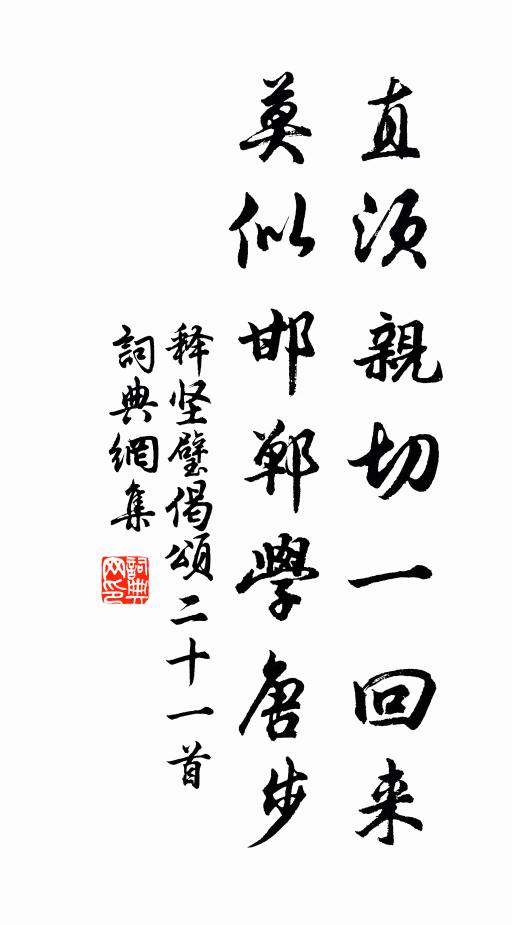 直须親切一回来
莫似邯鄲學唐步
释坚璧偈頌二十一首
詞典網集
詞典網印